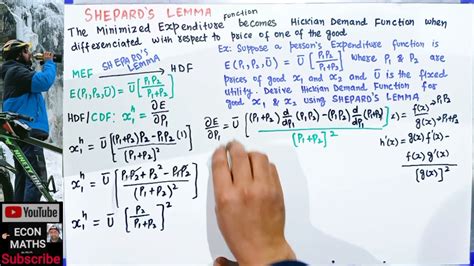 SHEPARD'S LEMMA
The Minimized Expenditure function becomes Hicksian Demand Function when
differentiated with respect to price of one of the good
MEF SHEPARD'S LEMMA → HDF
E(P₁,P₂,Ū) = Ū [P₁P₂ / P₁+P₂]
HDF/CDF: x₁ʰ = ∂E/∂P₁
x₁ʰ = Ū [(P₁+P₂)P₂ - P₁P₂(1) / (P₁+P₂)²]
x₁ʰ = Ū [P₁P₂ + P₂² - P₁P₂ / (P₁+P₂)²]
x₁ʰ = Ū [P₂ / P₁+P₂]²
Ex: Suppose a person's Expenditure function is
E(P₁,P₂,Ū) = Ū [P₁P₂ / P₁+P₂] where P₁ & P₂ are
prices of good x₁ and x₂ and Ū is the fixed
utility. Derive Hicksian Demand Function for
good x₁ & x₂ using SHEPARD'S LEMMA
∂E/∂P₁ = Ū [(P₁+P₂) d/dP₁ (P₁P₂) - (P₁P₂) d/dP₁ (P₁+P₂) / [P₁+P₂]²
f(x) → P₁P₂
g(x) → P₁+P₂
h'(x) = g(x) f'(x) -
f(x) g'(x)
[g(x)]²
YouTube
ECON
MATHS
Subscribe